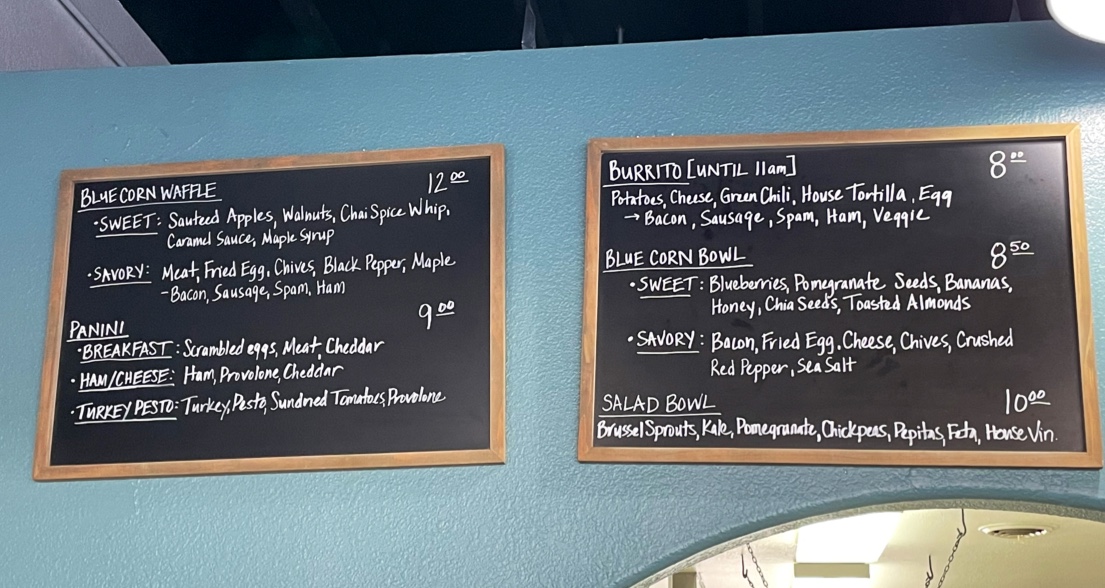 BLUE CORN WAFFLE 12 00
• SWEET: Sauteed Apples, Walnuts, Chai Spice Whip,
Caramel Sauce, Maple Syrup
• SAVORY: Meat, Fried Egg, Chives, Black Pepper, Maple
- Bacon, Sausage, Spam, Ham
PANINI 9 00
• BREAKFAST: Scrambled eggs, Meat, Cheddar
• HAM/CHEESE: Ham, Provolone, Cheddar
• TURKEY PESTO: Turkey, Pesto, Sundried Tomatoes, Provolone
BURRITO [UNTIL 11am] 8 00
Potatoes, Cheese, Green Chili, House Tortilla, Egg
→ Bacon, Sausage, Spam, Ham, Veggie
BLUE CORN BOWL 8 50
• SWEET: Blueberries, Pomegranate Seeds, Bananas,
Honey, Chia Seeds, Toasted Almonds
• SAVORY: Bacon, Fried Egg, Cheese, Chives, Crushed
Red Pepper, Sea Salt
SALAD BOWL 10 00
Brussel Sprouts, Kale, Pomegranate, Chickpeas, Pepitas, Feta, House Vin.